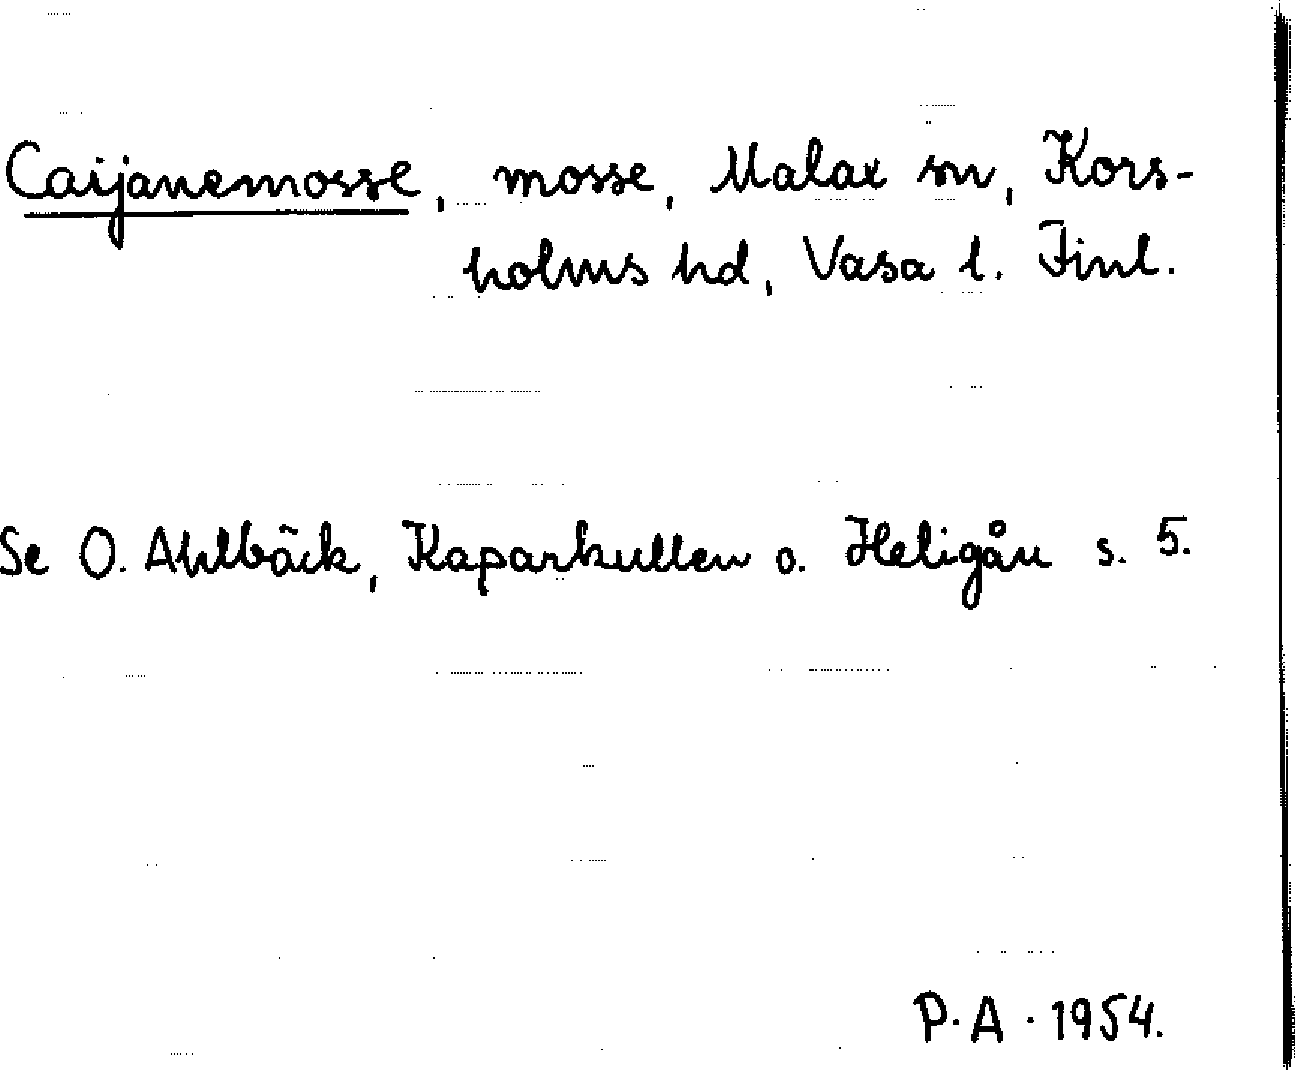 Caijanemosse, mosse, Malax sn, Kors-
holms hd, Vasa l. Finl.
Se O. Ahlbäck, Kaparkullen o. Heligån s. 5.
P. A. 1954.